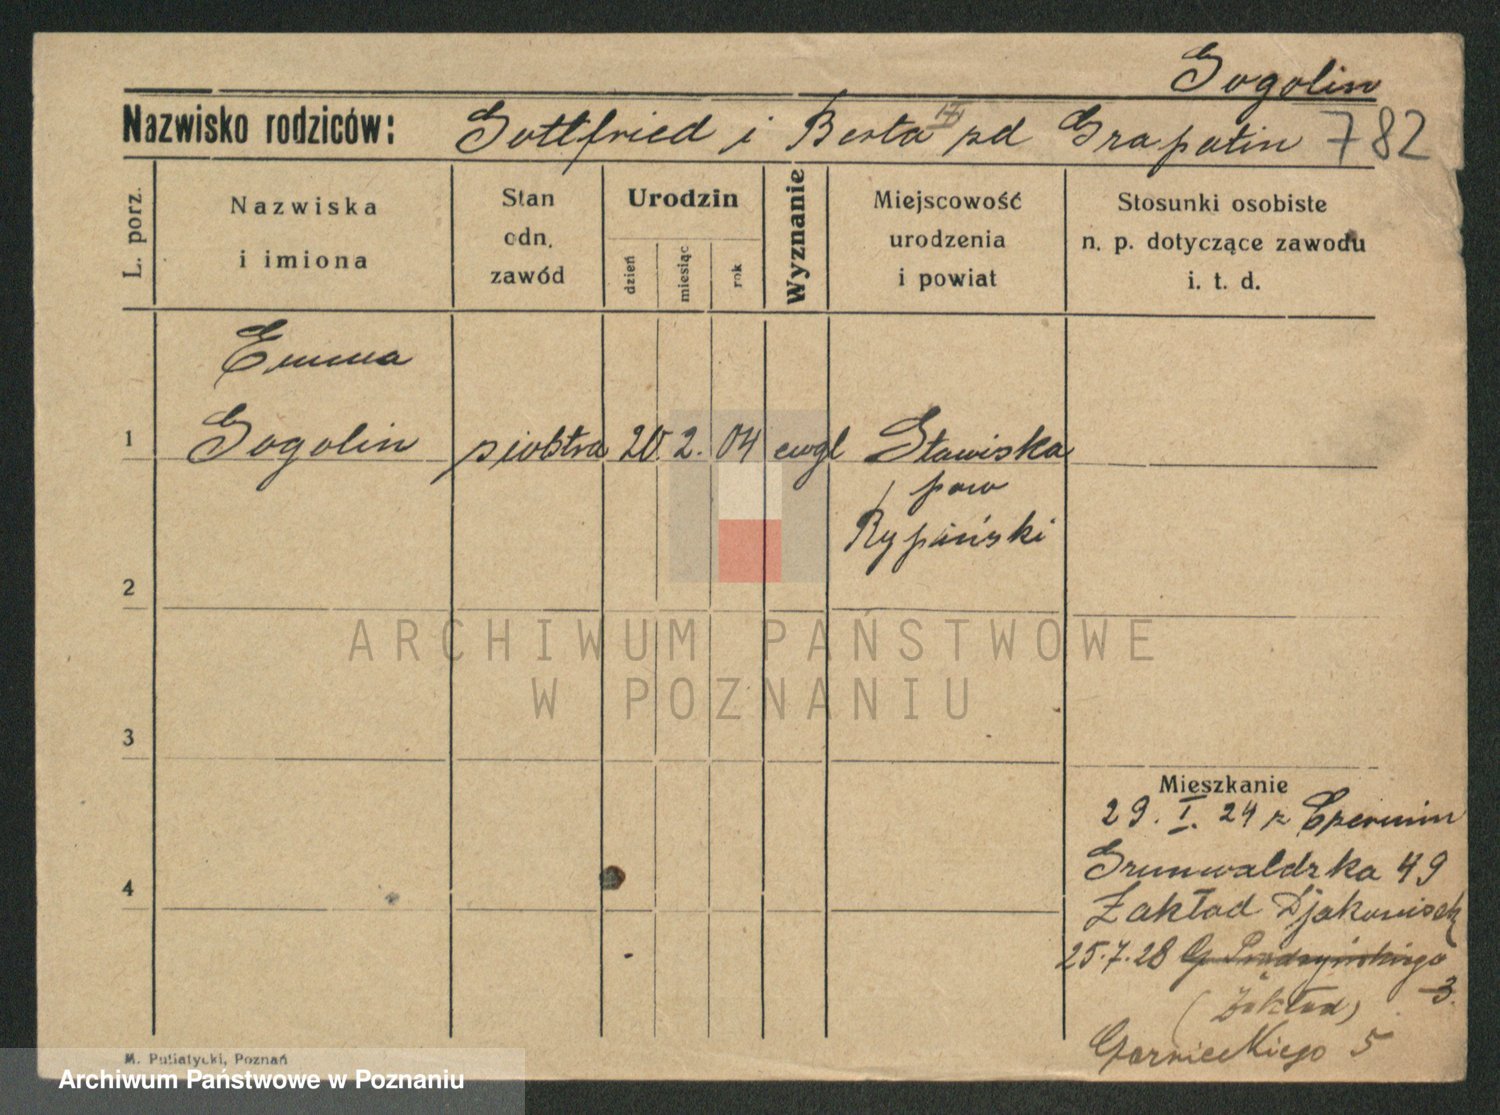 Gogolin
Nazwisko rodziców: Gottfried i Berta zd Grapatin 782
L. porz.
Nazwiska
i imiona
Stan
odn.
zawód
Urodzin
dzień
miesiąc
rok
Wyznanie
Miejscowość
urodzenia
i powiat
Stosunki osobiste
n. p. dotyczące zawodu
i. t. d.
Emma
1 Gogolin siostra 20. 2. 04 ewgl Stawiska
pow
Rypiński
2
ARCHIWUM PAŃSTWOWE
W POZNANIU
3
Mieszkanie
29. I. 24 z Czermin
Grunwaldzka 49
4
Zakład Djakonisek
25.7.28 G. Prądzyńskiego
3.
(Zakład)
Czarnieckiego 5
M. Putiatycki, Poznań
Archiwum Państwowe w Poznaniu